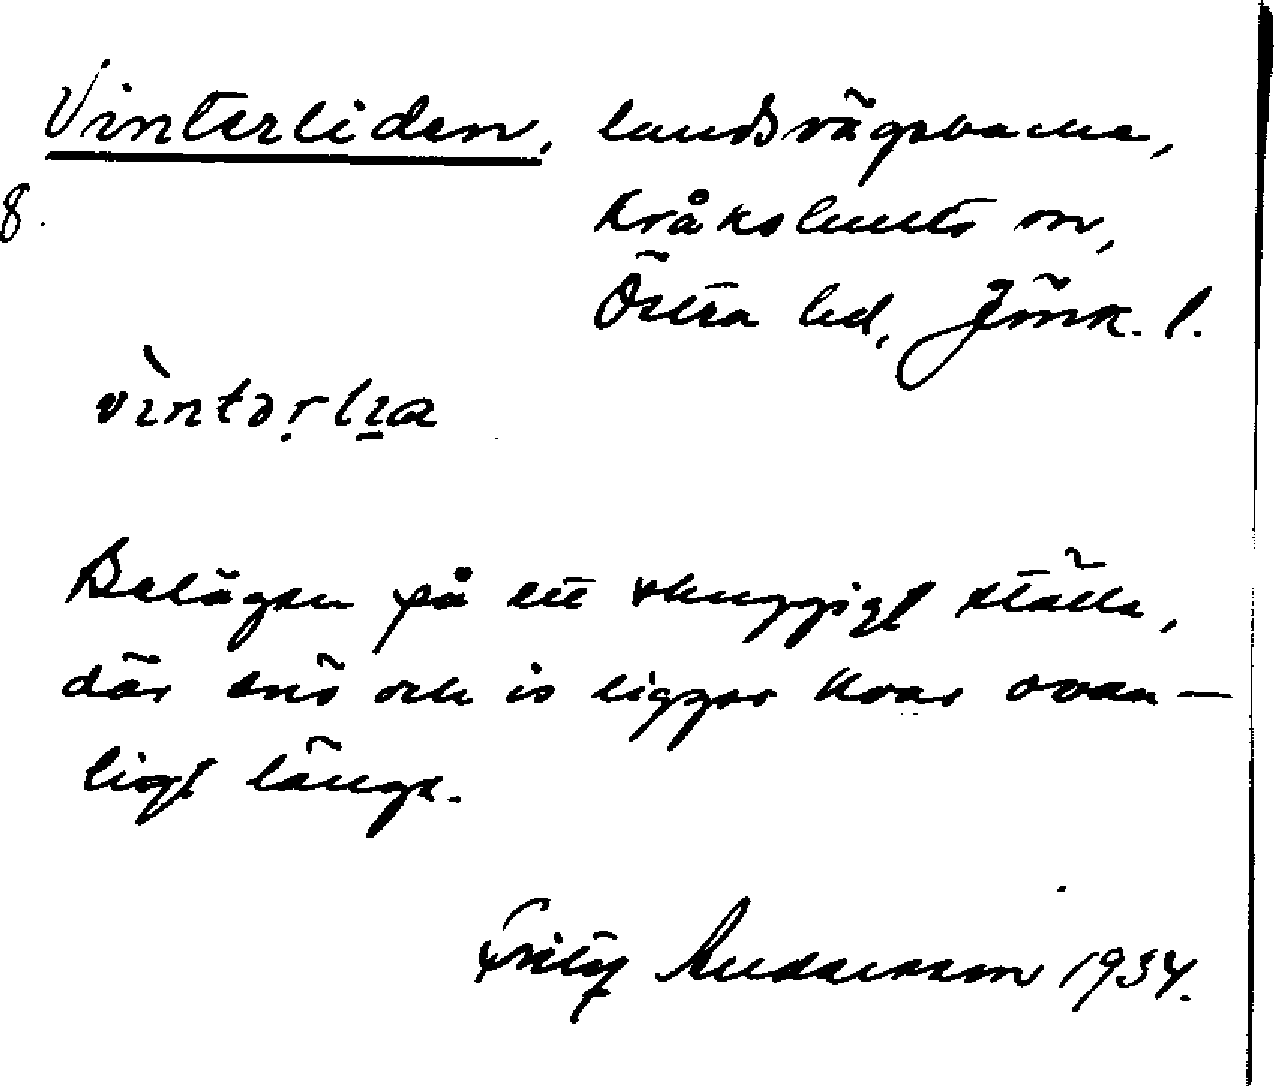 Vinterliden, landsvägsbacke,
8.
Kråkshults sn,
Östra hd, Jönk. l.
vìntəṛlıa
Belägen på ett skuggigt ställe,
där snö och is ligger kvar ovan-
ligt länge.
Fritz Andersson 1934.